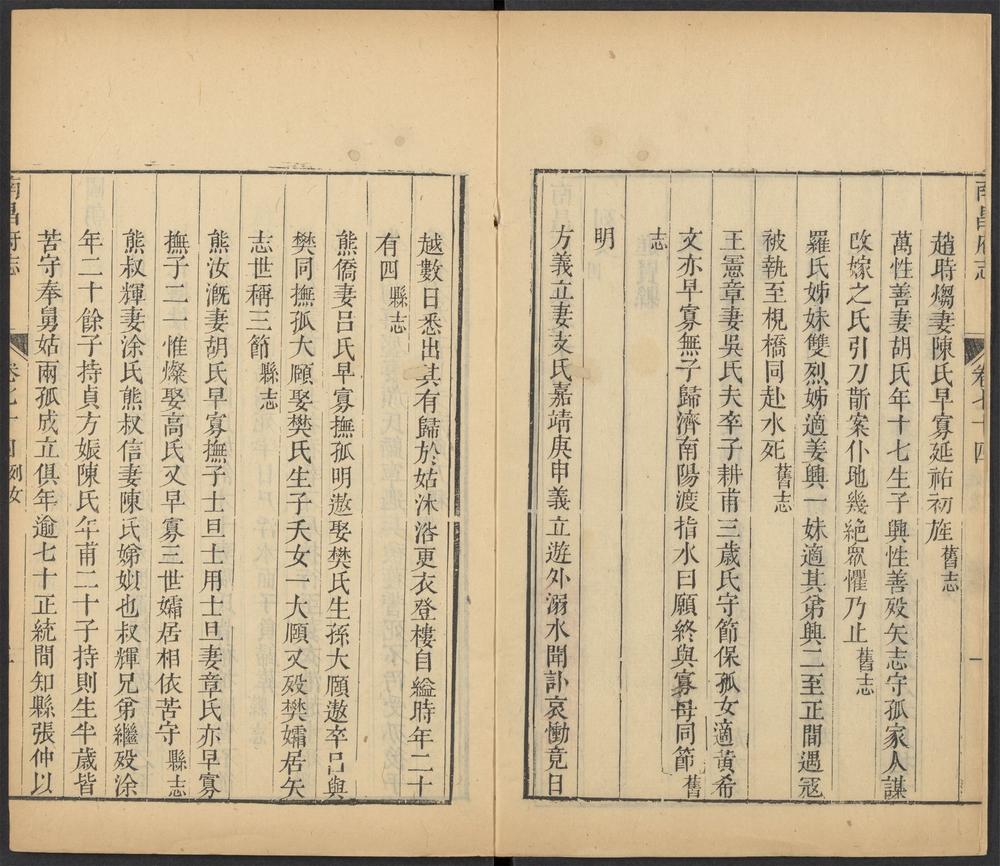 南昌府志
卷七十四
一
趙時煼妻陳氏早寡延祐初旌舊志
萬性善妻胡氏年十七生子興性善歿矢志守孤家人謀
改嫁之氏引刀斮案仆地幾絶眾懼乃止舊志
羅氏姊妹雙烈姊適姜興一妹適其弟興二至正間遇寇
被執至梘橋同赴水死舊志
王憲章妻吳氏夫卒子耕甫三歲氏守節保孤女適黃希
文亦早寡無子歸濟南陽渡指水曰願終與寡母同節舊
志
明
方義立妻支氏嘉靖庚申義立遊外溺水聞訃哀慟竟日
越數日悉出其有歸於姑沐浴更衣登樓自縊時年二十
有四縣志
熊僑妻呂氏早寡撫孤明遨娶樊氏生孫大願遨卒呂與
樊同撫孤大願娶樊氏生子夭女一大願又歿樊孀居矢
志世稱三節縣志
熊汝漑妻胡氏早寡撫子士旦士用士旦妻章氏亦早寡
撫子二一惟燦娶高氏又早寡三世孀居相依苦守縣志
熊叔輝妻涂氏熊叔信妻陳氏娣姒也叔輝兄弟繼歿涂
年二十餘子持貞方娠陳氏年甫二十子持則生半歲皆
苦守奉舅姑兩孤成立俱年逾七十正統間知縣張仲以
南昌府志
卷七十四列女